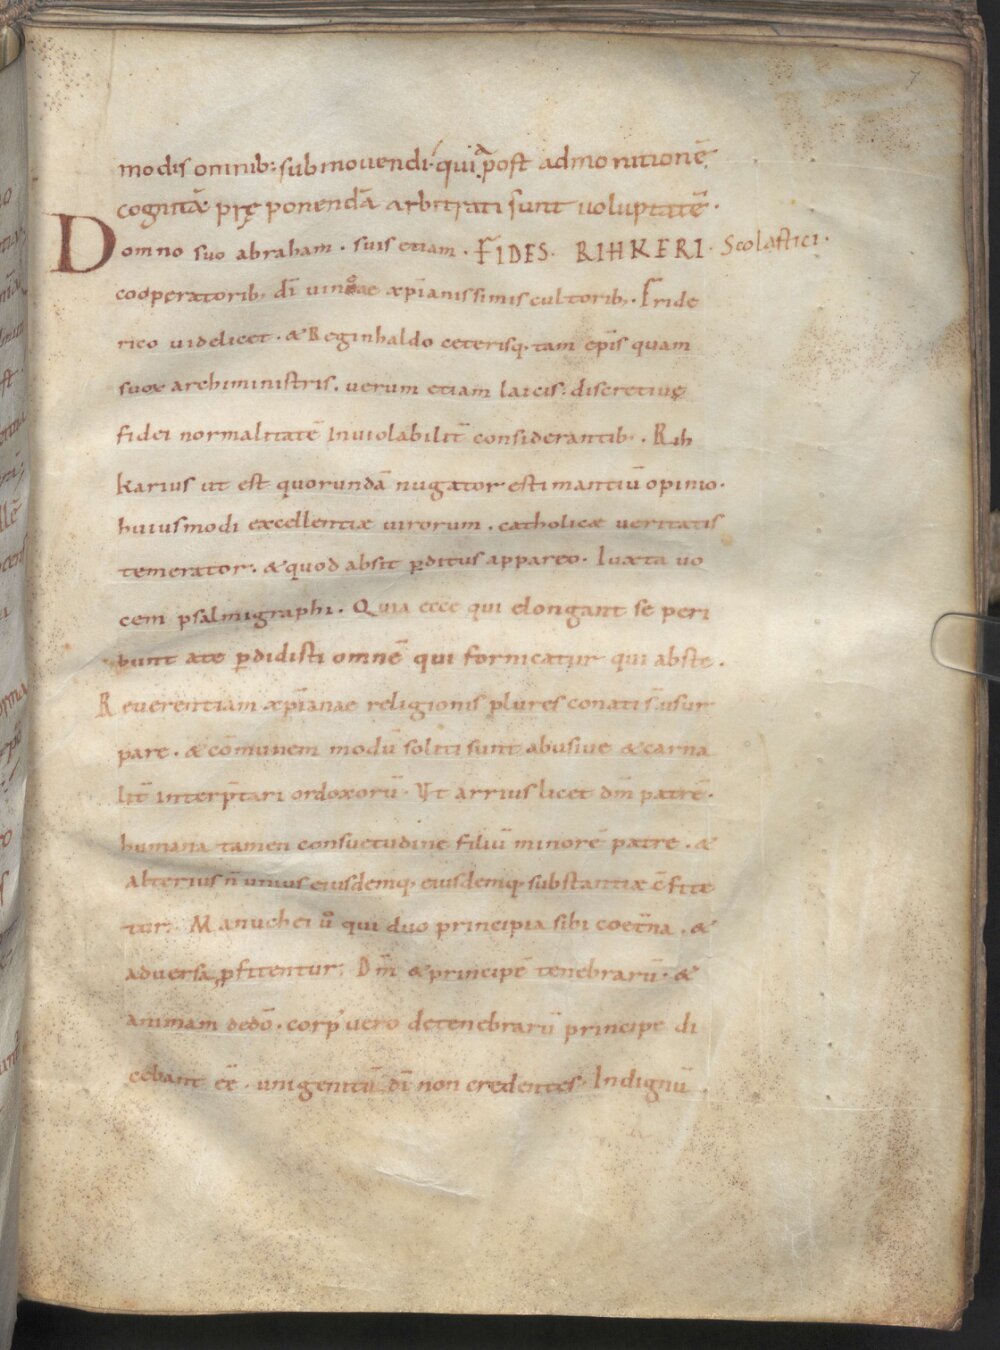 7
modis omnib: submouendi· qui post admonitionē·
cognitā pręponendā arbitrati sunt uoluptatē·
Domno suo abraham · suis etiam · FIDES · RIHKERI · Scolastici·
cooperatorib; dī uineae xp̄ianissimis cultorib;· Fride
rico uidelicet · & Reginbaldo ceterisq; tam ep̄is quam
suae archiministris · uerum etiam laicis: discretiuę
fidei normalitatē Inuiolabilit̄ considerantib;· Rih
karius ut est quorundā nugator estimantiū opinio·
huiusmodi excellentiæ uirorum · catholicæ ueritatis
temerator· & quod absit p̄ditus appareo· Iuxta uo
cem psalmigraphi· Quia ecce qui elongant se peri
bunt a te p̄didisti omnē qui fornicatur qui abs te·
Reuerentiam xp̄ianae religionis plures conati s̄ usur
pare · & cōmunem modū soliti sunt abusiue & carna
lit̄ interp̄tari ordoxorū· Vt arrius licet dm̄ patrē·
humana tamen consuetudine filiū minorē patre · &
Alterius n̄ unius eiusdemq; eiusdemq; substantiæ c̄fite
tur· Manuchei ů qui duo principia sibi coet̄na · &
aduersa p̄fitentur; Dm̄ & principē tenebrarū· &
animam de dō· corp' uero de tenebrarū principe di
cebant eē̄· unigenitū dī non credentes· Indignū